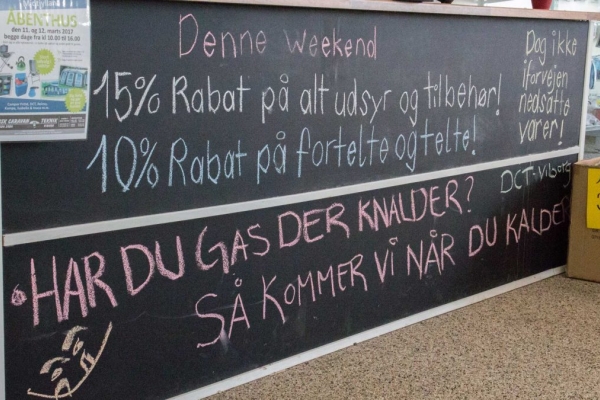 ÅBENTHUS
den 11. og 12. marts 2017
begge dage fra kl 10.00 til 16.00
Denne weekend
15% Rabat på alt udsyr og tilbehør!
10% Rabat på fortelte og telte!
Dog ikke
iforvejen
nedsatte
varer!
DCT-Viborg
HAR DU GAS DER KNALDER?
SÅ KOMMER VI NÅR DU KALDER